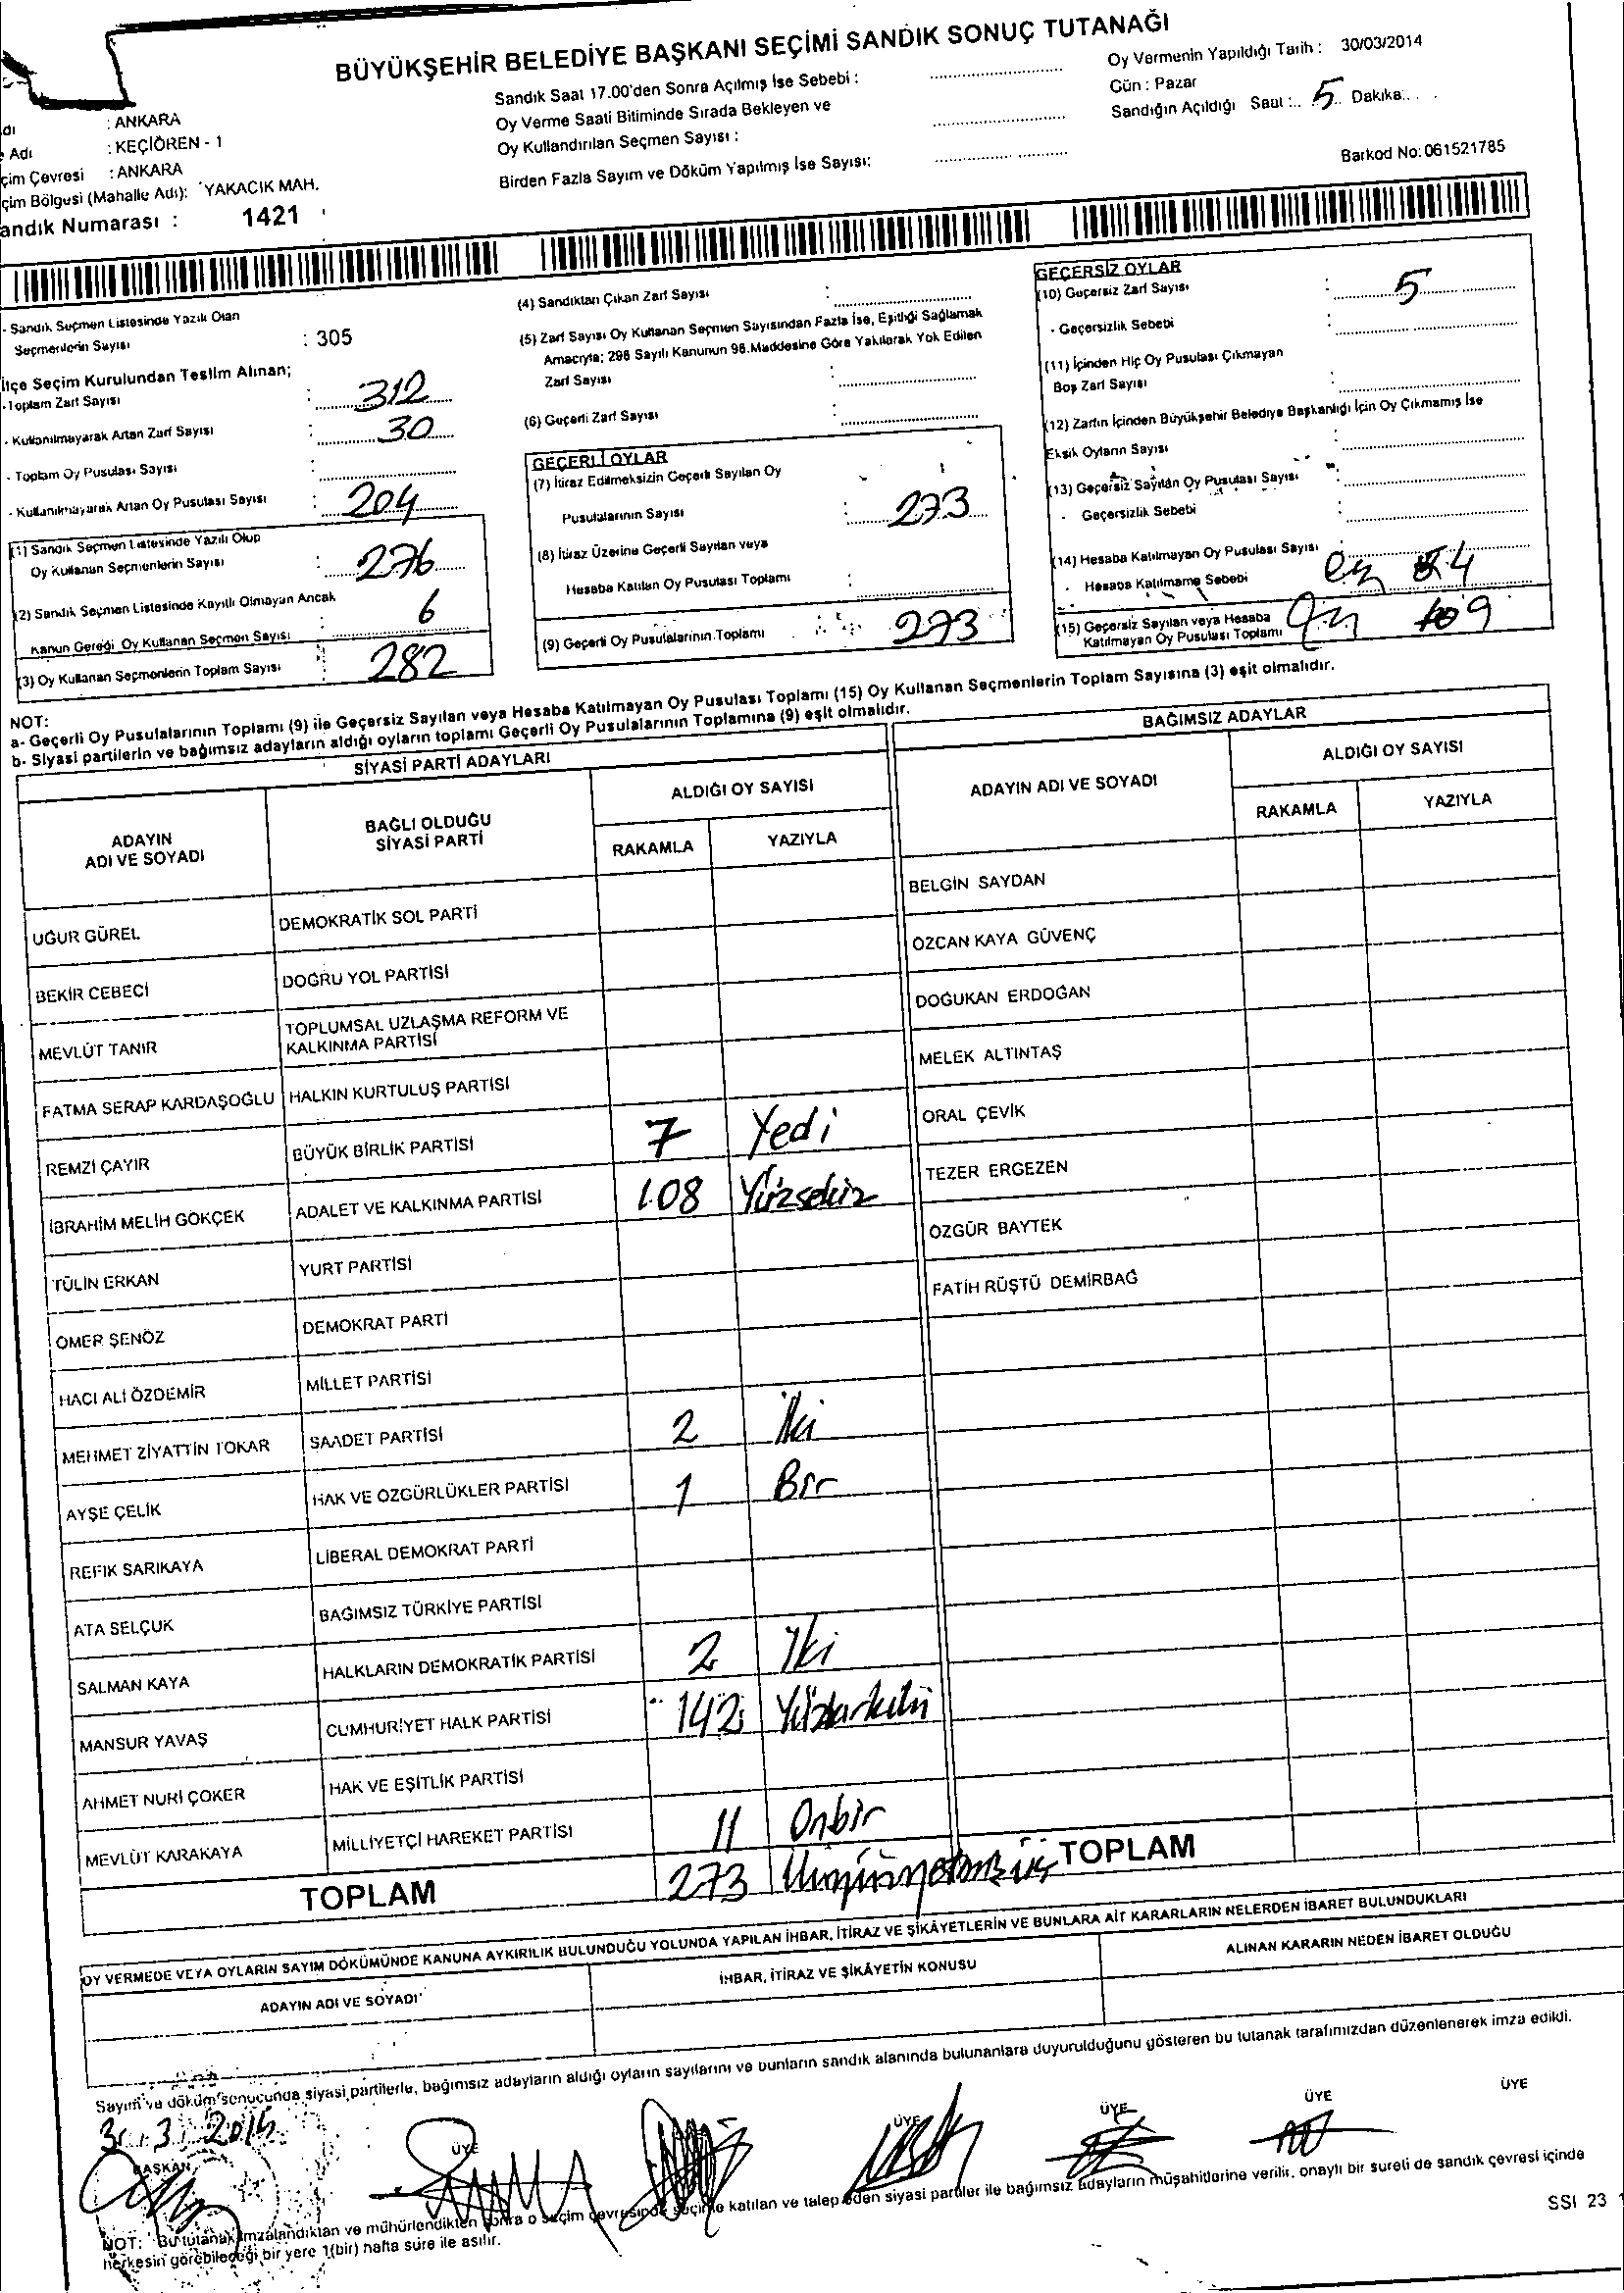 BÜYÜKŞEHİR BELEDİYE BAŞKANI SEÇİMİ SANDIK SONUÇ TUTANAĞI
dı : ANKARA
Adı : KEÇİÖREN - 1
çim Çevresi : ANKARA
çim Bölgesi (Mahalle Adı): YAKACIK MAH.
andık Numarası : 1421
Sandık Saat 17.00'den Sonra Açılmış İse Sebebi :
Oy Verme Saati Bitiminde Sırada Bekleyen ve
Oy Kullandırılan Seçmen Sayısı :
Birden Fazla Sayım ve Döküm Yapılmış İse Sayısı:
Oy Vermenin Yapıldığı Tarih : 30/03/2014
Gün : Pazar
Sandığın Açıldığı Saat :.. 5.. Dakika:. . .
Barkod No: 061521785
- Sandık Seçmen Listesinde Yazılı Olan
Seçmenlerin Sayısı : 305
İlçe Seçim Kurulundan Teslim Alınan;
-Toplam Zarf Sayısı : 312
- Kullanılmayarak Artan Zarf Sayısı : 30
- Toplam Oy Pusulası Sayısı :
- Kullanılmayarak Artan Oy Pusulası Sayısı : 204
(1) Sandık Seçmen Listesinde Yazılı Olup
Oy Kullanan Seçmenlerin Sayısı : 276
(2) Sandık Seçmen Listesinde Kayıtlı Olmayan Ancak
Kanun Gereği Oy Kullanan Seçmen Sayısı 6
(3) Oy Kullanan Seçmenlerin Toplam Sayısı : 282
(4) Sandıktan Çıkan Zarf Sayısı :
(5) Zarf Sayısı Oy Kullanan Seçmen Sayısından Fazla İse, Eşitliği Sağlamak
Amacıyla; 298 Sayılı Kanunun 98.Maddesine Göre Yakılarak Yok Edilen
Zarf Sayısı :
(6) Geçerli Zarf Sayısı :
GEÇERLİ OYLAR
(7) İtiraz Edilmeksizin Geçerli Sayılan Oy
Pusulalarının Sayısı : 273
(8) İtiraz Üzerine Geçerli Sayılan veya
Hesaba Katılan Oy Pusulası Toplamı :
(9) Geçerli Oy Pusulalarının Toplamı : 273
GEÇERSİZ OYLAR
(10) Geçersiz Zarf Sayısı : 5
- Geçersizlik Sebebi :
(11) İçinden Hiç Oy Pusulası Çıkmayan
Boş Zarf Sayısı :
(12) Zarfın İçinden Büyükşehir Belediye Başkanlığı İçin Oy Çıkmamış İse
Eksik Oyların Sayısı :
(13) Geçersiz Sayılan Oy Pusulası Sayısı :
- Geçersizlik Sebebi :
(14) Hesaba Katılmayan Oy Pusulası Sayısı : 4
- Hesaba Katılmama Sebebi
(15) Geçersiz Sayılan veya Hesaba
Katılmayan Oy Pusulası Toplamı 9
NOT:
a- Geçerli Oy Pusulalarının Toplamı (9) ile Geçersiz Sayılan veya Hesaba Katılmayan Oy Pusulası Toplamı (15) Oy Kullanan Seçmenlerin Toplam Sayısına (3) eşit olmalıdır.
b- Siyasi partilerin ve bağımsız adayların aldığı oyların toplamı Geçerli Oy Pusulalarının Toplamına (9) eşit olmalıdır.
SİYASİ PARTİ ADAYLARI
ADAYIN ADI VE SOYADI BAĞLI OLDUĞU SİYASİ PARTİ ALDIĞI OY SAYISI
RAKAMLA YAZIYLA
UĞUR GÜREL DEMOKRATİK SOL PARTİ
BEKİR CEBECİ DOĞRU YOL PARTİSİ
MEVLÜT TANIR TOPLUMSAL UZLAŞMA REFORM VE KALKINMA PARTİSİ
FATMA SERAP KARDAŞOĞLU HALKIN KURTULUŞ PARTİSİ
REMZİ ÇAYIR BÜYÜK BİRLİK PARTİSİ 7 Yedi
İBRAHİM MELİH GÖKÇEK ADALET VE KALKINMA PARTİSİ 108 Yüzsekiz
TÜLİN ERKAN YURT PARTİSİ
ÖMER ŞENÖZ DEMOKRAT PARTİ
HACI ALİ ÖZDEMİR MİLLET PARTİSİ
MEHMET ZİYATTİN TOKAR SAADET PARTİSİ 2 İki
AYŞE ÇELİK HAK VE ÖZGÜRLÜKLER PARTİSİ 1 Bir
REFİK SARIKAYA LİBERAL DEMOKRAT PARTİ
ATA SELÇUK BAĞIMSIZ TÜRKİYE PARTİSİ
SALMAN KAYA HALKLARIN DEMOKRATİK PARTİSİ 2 İki
MANSUR YAVAŞ CUMHURİYET HALK PARTİSİ 142
AHMET NURİ ÇÖKER HAK VE EŞİTLİK PARTİSİ
MEVLÜT KARAKAYA MİLLİYETÇİ HAREKET PARTİSİ 11 Onbir
TOPLAM 273
BAĞIMSIZ ADAYLAR
ADAYIN ADI VE SOYADI ALDIĞI OY SAYISI
RAKAMLA YAZIYLA
BELGİN SAYDAN
ÖZCAN KAYA GÜVENÇ
DOĞUKAN ERDOĞAN
MELEK ALTINTAŞ
ORAL ÇEVİK
TEZER ERGEZEN
ÖZGÜR BAYTEK
FATİH RÜŞTÜ DEMİRBAĞ
TOPLAM
OY VERMEDE VEYA OYLARIN SAYIM DÖKÜMÜNDE KANUNA AYKIRILIK BULUNDUĞU YOLUNDA YAPILAN İHBAR, İTİRAZ VE ŞİKÂYETLERİN VE BUNLARA AİT KARARLARIN NELERDEN İBARET BULUNDUKLARI
ADAYIN ADI VE SOYADI İHBAR, İTİRAZ VE ŞİKÂYETİN KONUSU ALINAN KARARIN NEDEN İBARET OLDUĞU
Sayım ve döküm sonucunda siyasi partilerle, bağımsız adayların aldığı oyların sayılarını ve bunların sandık alanında bulunanlara duyurulduğunu gösteren bu tutanak tarafımızdan düzenlenerek imza edildi.
BAŞKAN ÜYE ÜYE ÜYE ÜYE ÜYE
NOT: Bu tutanak imzalandıktan ve mühürlendikten sonra o seçim çevresinde seçime katılan ve talep eden siyasi partiler ile bağımsız adayların müşahitlerine verilir, onaylı bir sureti de sandık çevresi içinde
herkesin görebileceği bir yere 1(bir) hafta süre ile asılır.
SSI 23